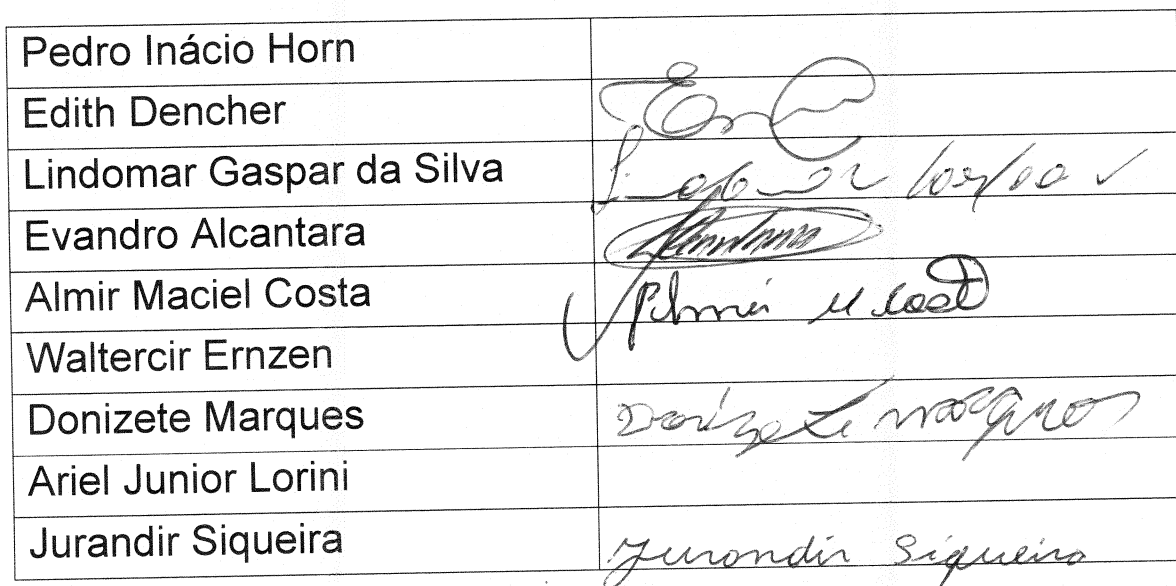 Pedro Inácio Horn
Edith Dencher
Lindomar Gaspar da Silva
Evandro Alcantara
Almir Maciel Costa Almir M Costa
Waltercir Ernzen
Donizete Marques Donizete Marques
Ariel Junior Lorini
Jurandir Siqueira Jurandir Siqueira